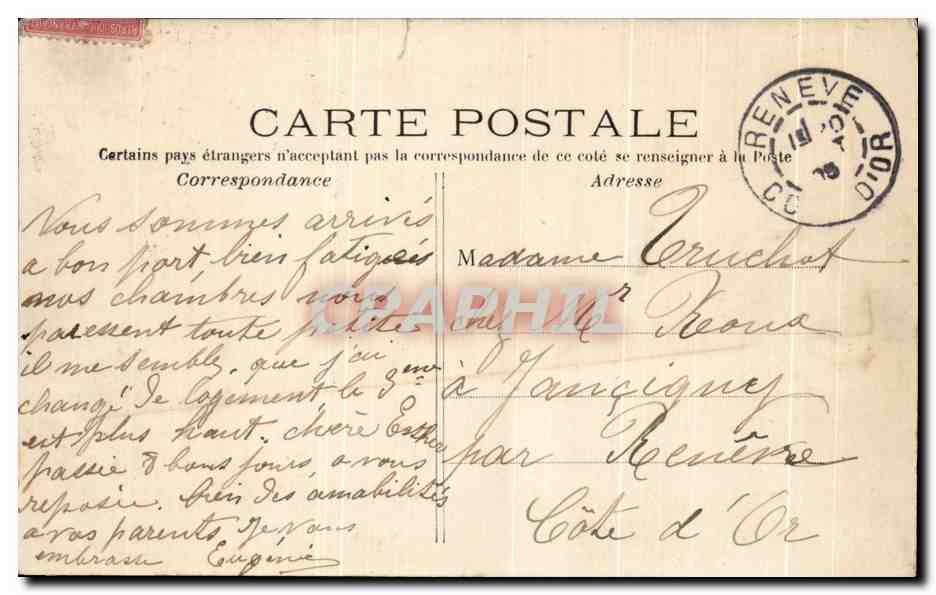 CARTE POSTALE
Certains pays étrangers n'acceptant pas la correspondance de ce coté se renseigner à la Poste
Correspondance
Vous sommes arrivés
a bon port bien fatigués
nos chambres nous
paressent toute petites
il me semble, que j'ai
changé de logement le 3eme
est plus haut. chère Esther
passée 8 bons jours, a vous
reposée. bien des amabilités
a vos parents, Je vous
embrasse Eugénie
Adresse
Madame Truchot
chez Mr Roux
à Jancigney
par Renêve
Côte d'Or
RENEVE
CO D'OR
CPAPHIL